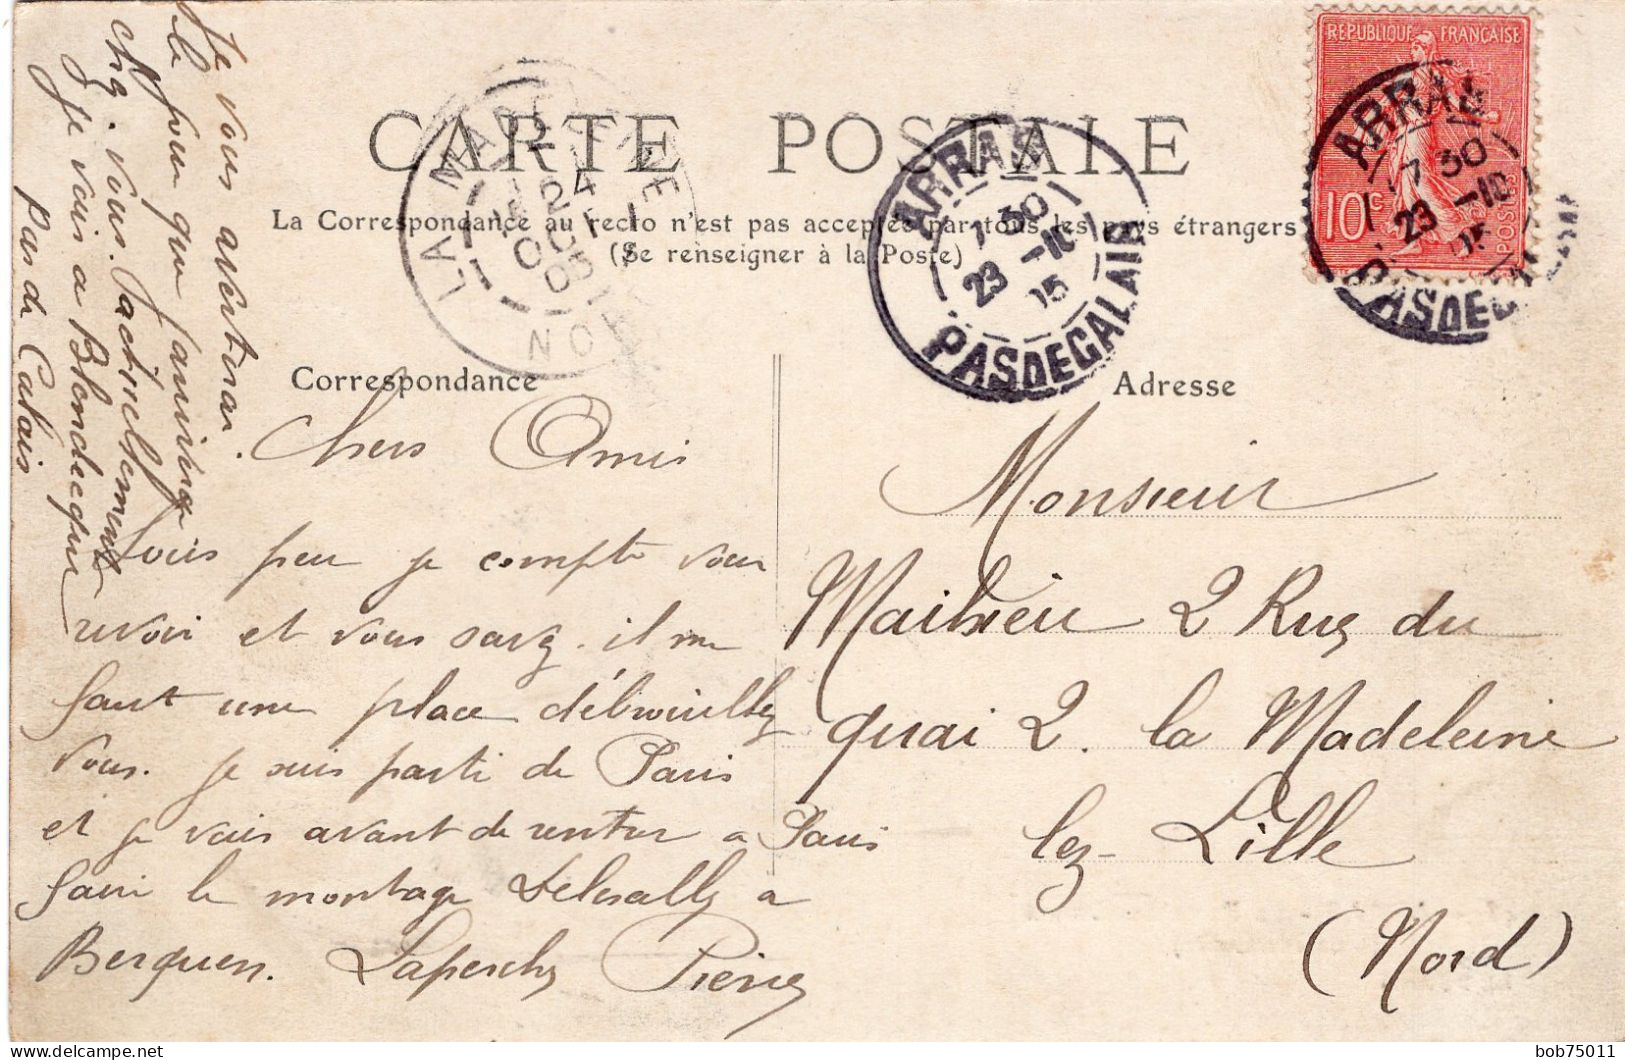 CARTE POSTALE
La Correspondance au recto n'est pas acceptée par tous les pays étrangers
(Se renseigner à la Poste)
Correspondance
Adresse
REPUBLIQUE FRANÇAISE
10c
POSTES
ARRAS
7 30
23 -10
05
PAS DE CALAIS
ARRAS
7 30
23 -10
05
PAS DE CALAIS
LA MADELEINE
24
OCT
05
NORD
Chers Amis
Sous peu je compte vous
revoir et vous savez. il me
faut une place débrouillez
vous. je suis parti de Paris
et je vais avant de rentrer a Paris
faire le montage Delesally a
Berguen. Laperche Pierre
Je vous avertirai
le jour que j'arriverai
chez vous. Pactuellement
je vais a Blendecque
Pas de Calais
Monsieur
Mathieu 2 Rue du
quai 2. la Madeleine
lez-Lille
(Nord)
bob75011